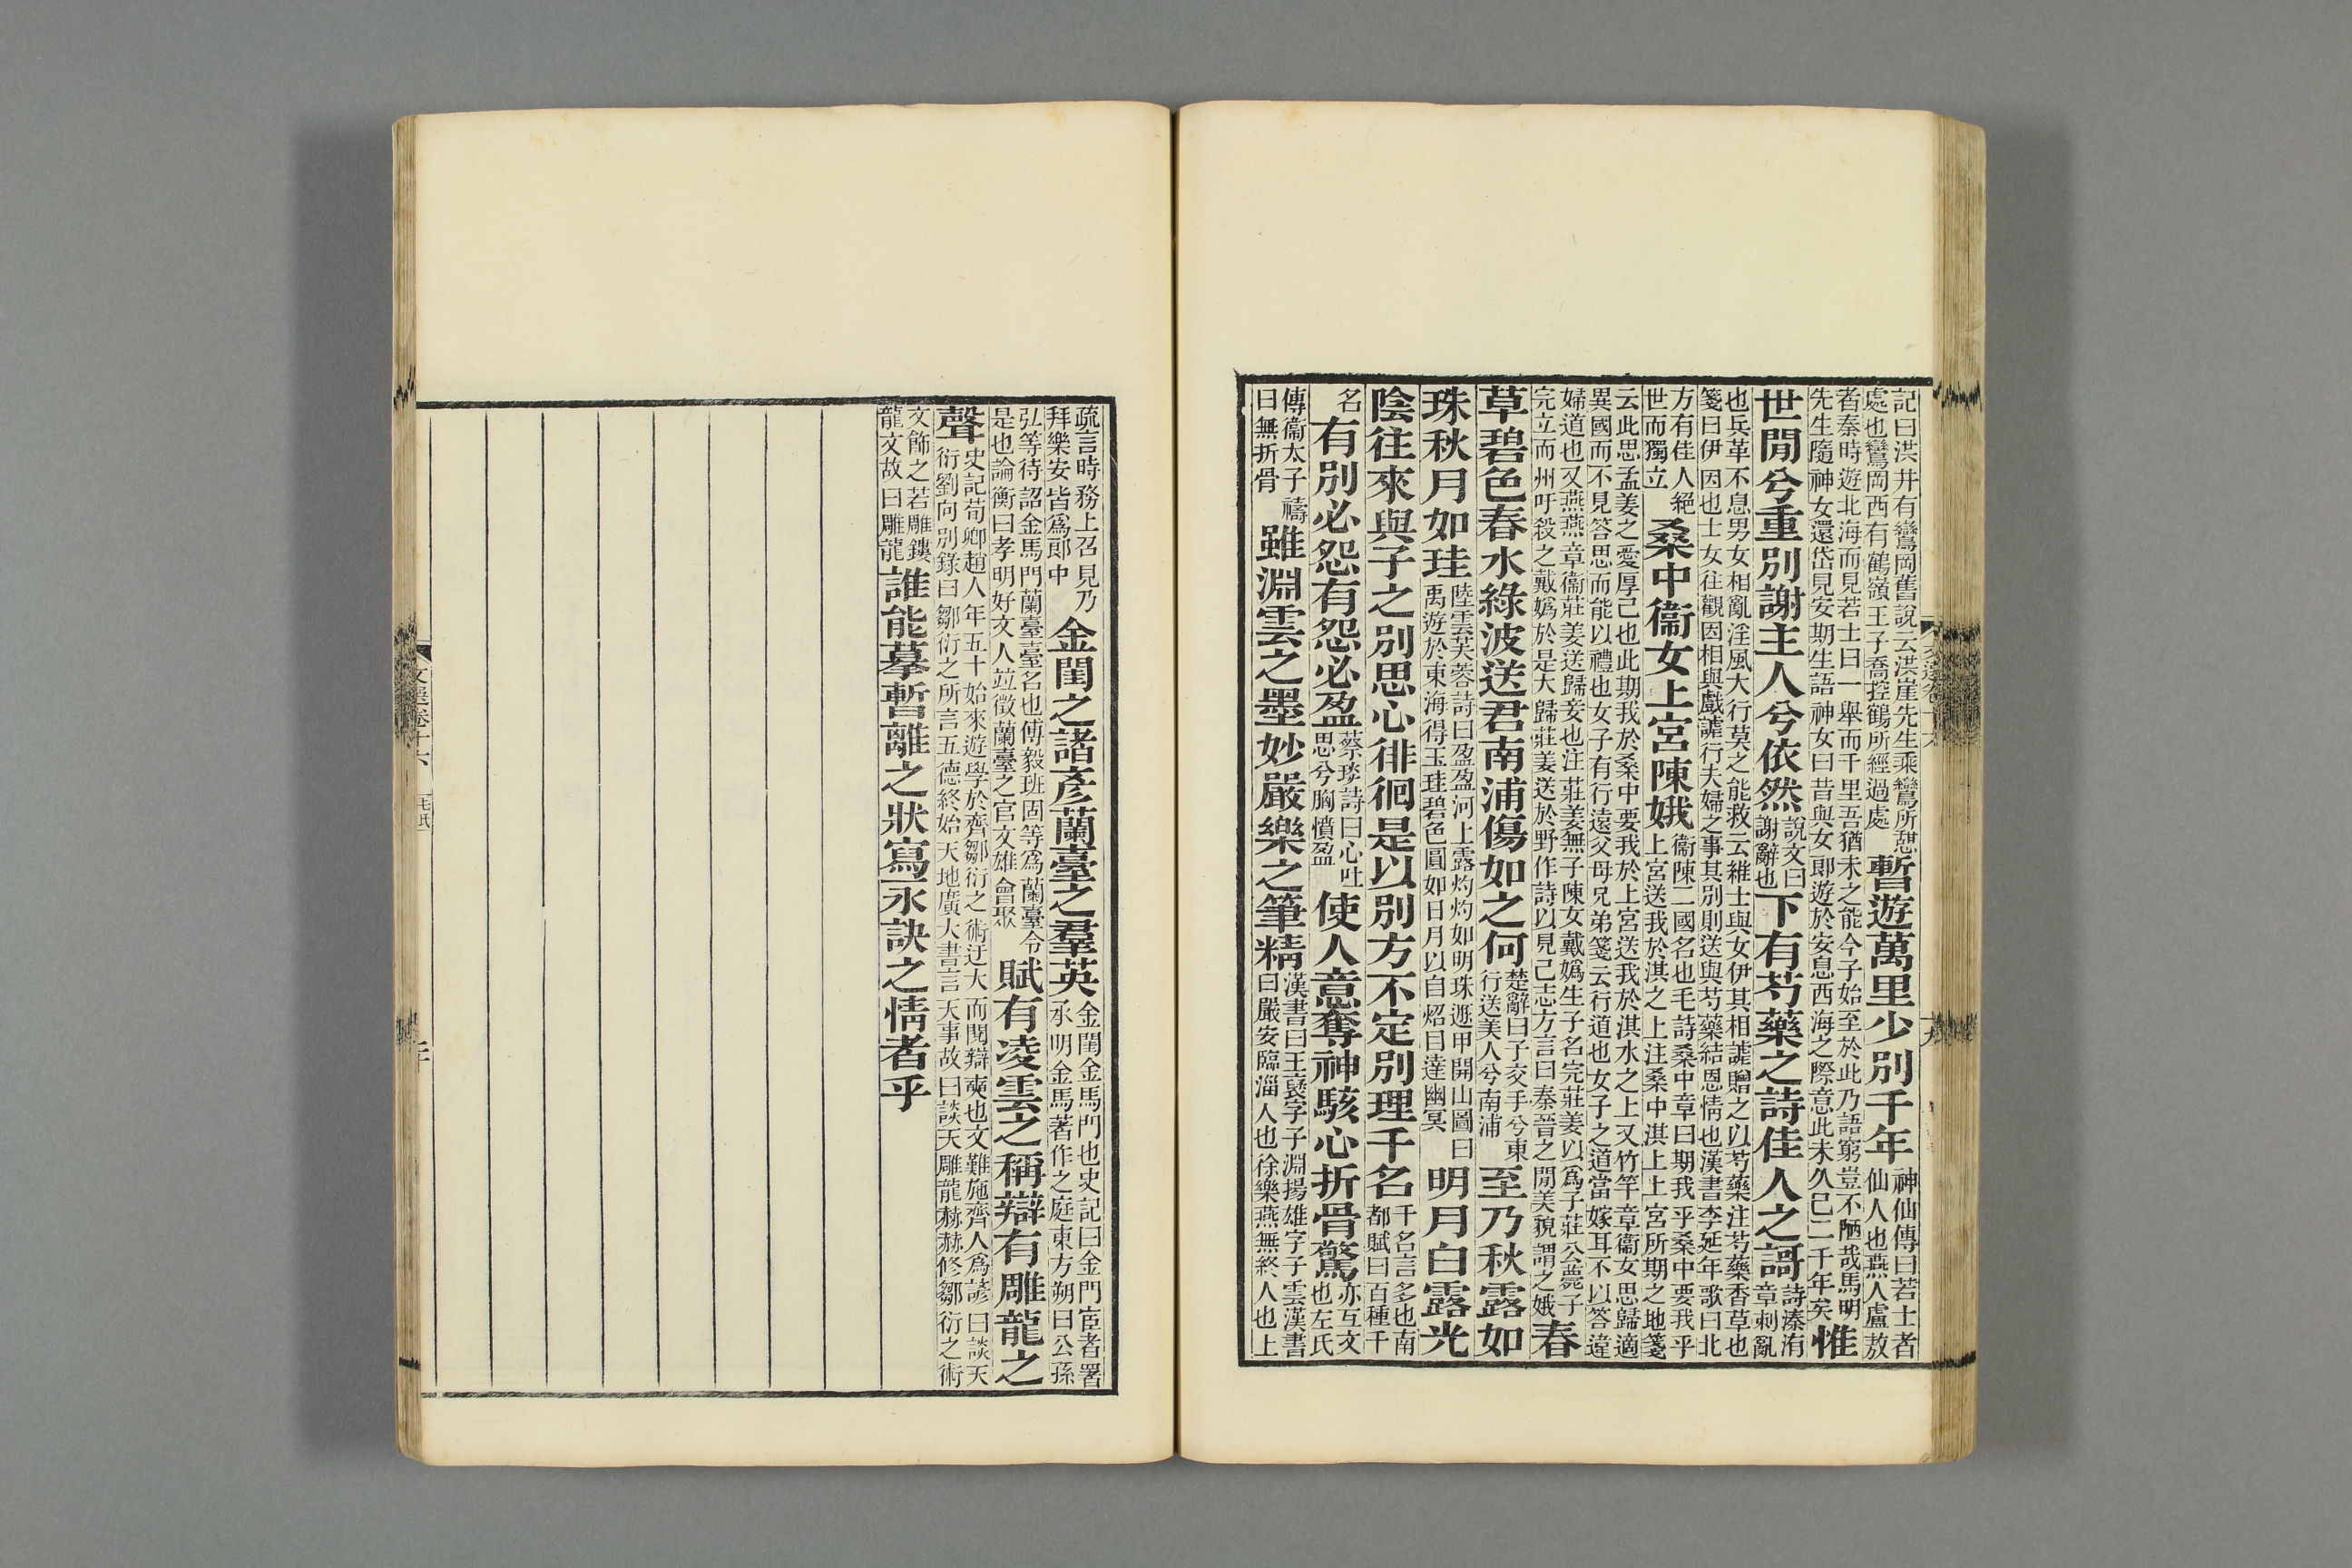 記曰洪井有鸞岡舊說云洪崖先生乘鸞所憩
處也鸞岡西有鶴嶺王子喬控鶴所經過處
暫遊萬里少別千年
神仙傳曰若士者
仙人也燕人盧敖
者秦時遊北海而見若士曰一舉而千里吾猶未之能今子始至於此乃語窮豈不陋哉馬明
先生隨神女還岱見安期生語神女曰昔與女郎遊於安息西海之際意此未久已二千年矣
惟
世閒兮重別謝主人兮依然
說文曰
謝辭也
下有芍藥之詩佳人之謌
詩溱洧
章刺亂
也兵革不息男女相亂淫風大行莫之能救云維士與女伊其相謔贈之以芍藥注芍藥香草也
箋曰伊因也士女往觀因相與戲謔行夫婦之事其別則送與芍藥結恩情也漢書李延年歌曰北
方有佳人絕
世而獨立
桑中衞女上宮陳娥
衞陳二國名也毛詩桑中章曰期我乎桑中要我乎
上宮送我於淇之上注桑中淇上上宮所期之地箋
云此思孟姜之愛厚己也此期我於桑中要我於上宮送我於淇水之上又竹竿章衞女思歸適
異國而不見答思而能以禮也女子有行遠父母兄弟箋云行道也女子之道當嫁耳不以答違
婦道也又燕燕章衞莊姜送歸妾也注莊姜無子陳女戴嬀生子名完莊姜以爲子莊公薨子
完立而州吁殺之戴嬀於是大歸莊姜送於野作詩以見己志方言曰秦晉之閒美貌謂之娥
春
草碧色春水綠波送君南浦傷如之何
楚辭曰子交手兮東
行送美人兮南浦
至乃秋露如
珠秋月如珪
陸雲芙蓉詩曰盈盈河上露灼灼如明珠遯甲開山圖曰
禹遊於東海得玉珪碧色圓如日月以自炤目達幽冥
明月白露光
陰往來與子之別思心徘徊是以別方不定別理千名
千名言多也南
都賦曰百種千
名
有別必怨有怨必盈
蔡琰詩曰心吐
思兮胸憤盈
使人意奪神駭心折骨驚
亦互文
也左氏
傳衞太子禱
曰無折骨
雖淵雲之墨妙嚴樂之筆精
漢書曰王襃字子淵揚雄字子雲漢書
曰嚴安臨淄人也徐樂燕無終人也上
文選卷十六
九
疏言時務上召見乃
拜樂安皆爲郎中
金閨之諸彥蘭臺之羣英
金閨金馬門也史記曰金門宦者署
承明金馬著作之庭東方朔曰公孫
弘等待詔金馬門蘭臺臺名也傅毅班固等爲蘭臺令
是也論衡曰孝明好文人竝徵蘭臺之官文雄會聚
賦有凌雲之稱辯有雕龍之
聲
史記荀卿趙人年五十始來遊學於齊鄒衍之術迂大而閎辯奭也文難施齊人爲諺曰談天
衍劉向別錄曰鄒衍之所言五德終始天地廣大書言天事故曰談天雕龍赫赫修鄒衍之術
文飾之若雕鏤
龍文故曰雕龍
誰能摹暫離之狀寫永訣之情者乎
文選卷十六
二十